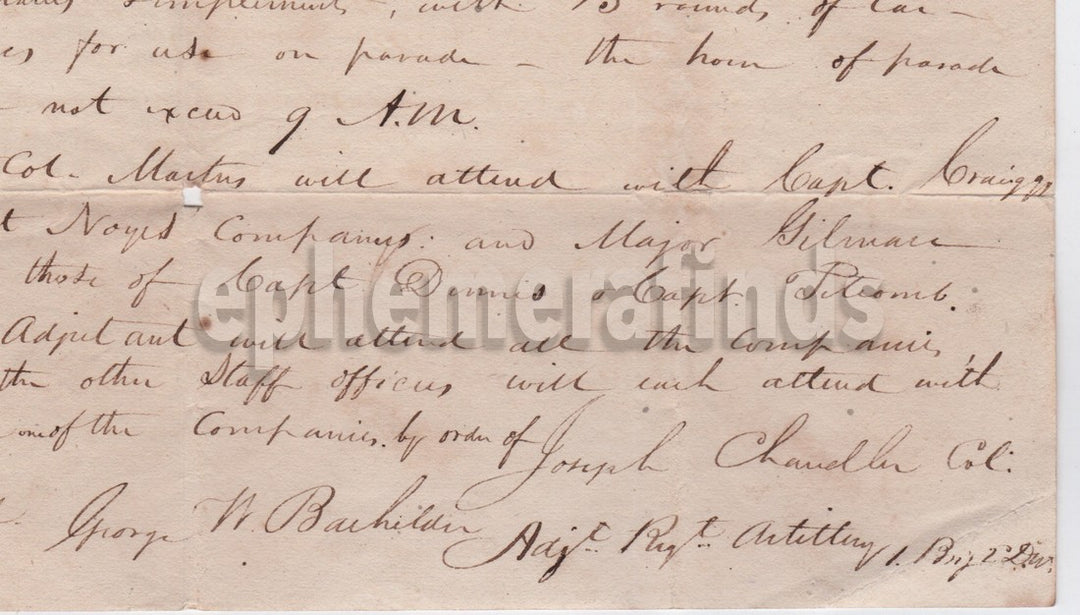 implements, with 13 rounds of Car-
es for use on parade - the hour of parade
not exceed 9 A.M.
Col. Martus will attend with Capt. Craiggs
t Noyes Companies. and Major Gilman
those of Capt Dennis & Capt. Titcomb.
Adjutant will attend all the Companies,
the other Staff officers will each attend with
one of the Companies. by order of
Joseph Chandler Col.
George W. Bachilder
Adjt. Regt. Artillery 1. Brig 2d Div.
ephemerafinds